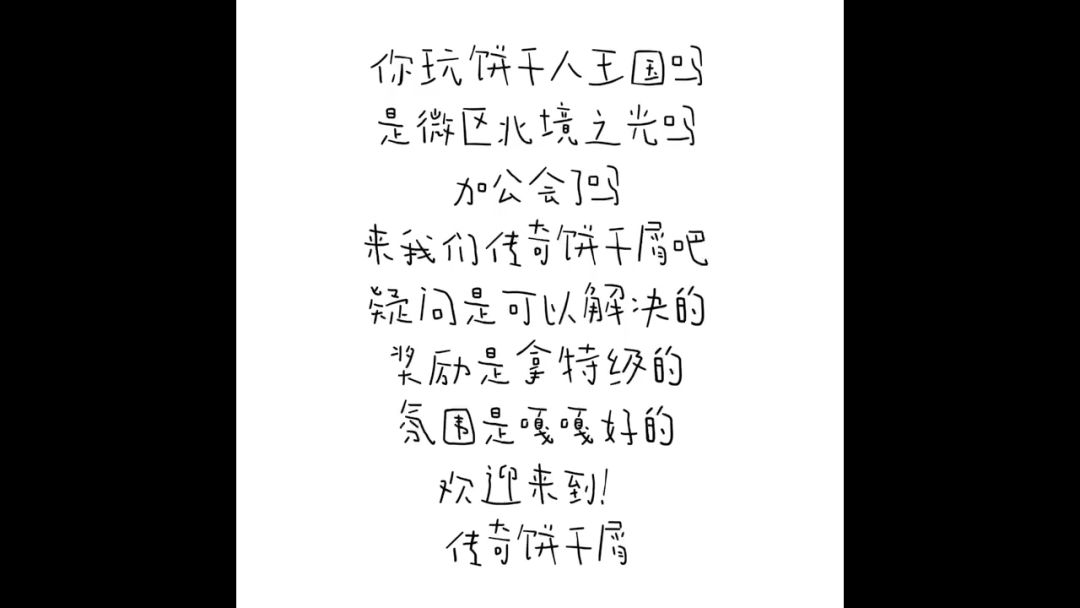 你玩饼干人王国吗
是微区北境之光吗
加公会了吗
来我们传奇饼干屑吧
疑问是可以解决的
奖励是拿特级的
氛围是嘎嘎好的
欢迎来到!
传奇饼干屑